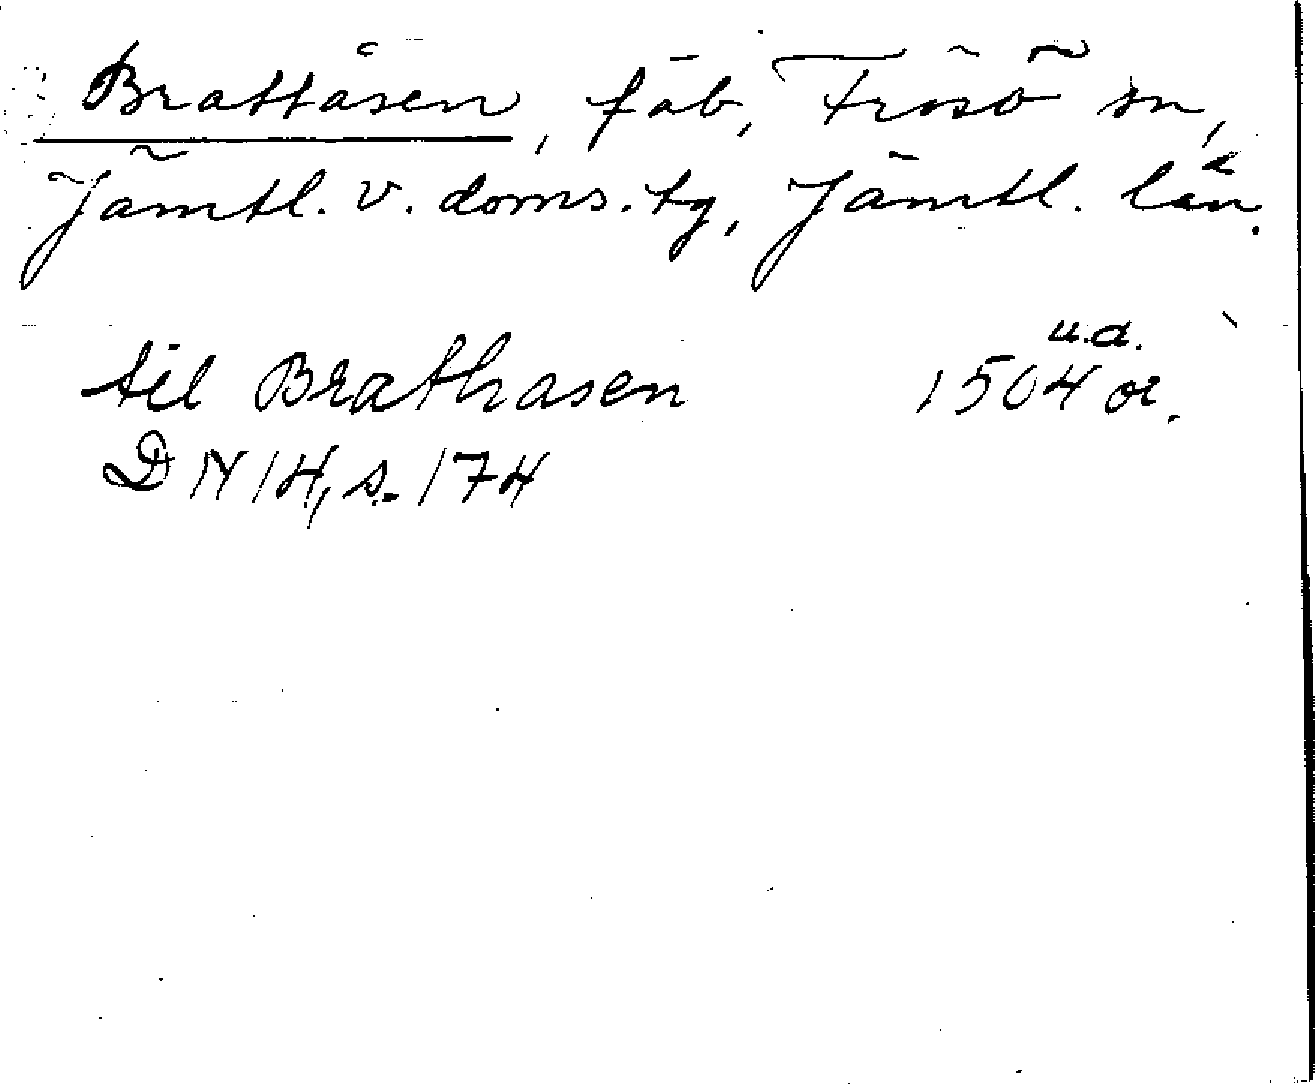 Brattåsen, fäb, Frösö sn,
Jämtl. v. doms. tg, Jämtl. län.
u.a.
til Brathasen 1504 or.
DN 14, s. 174